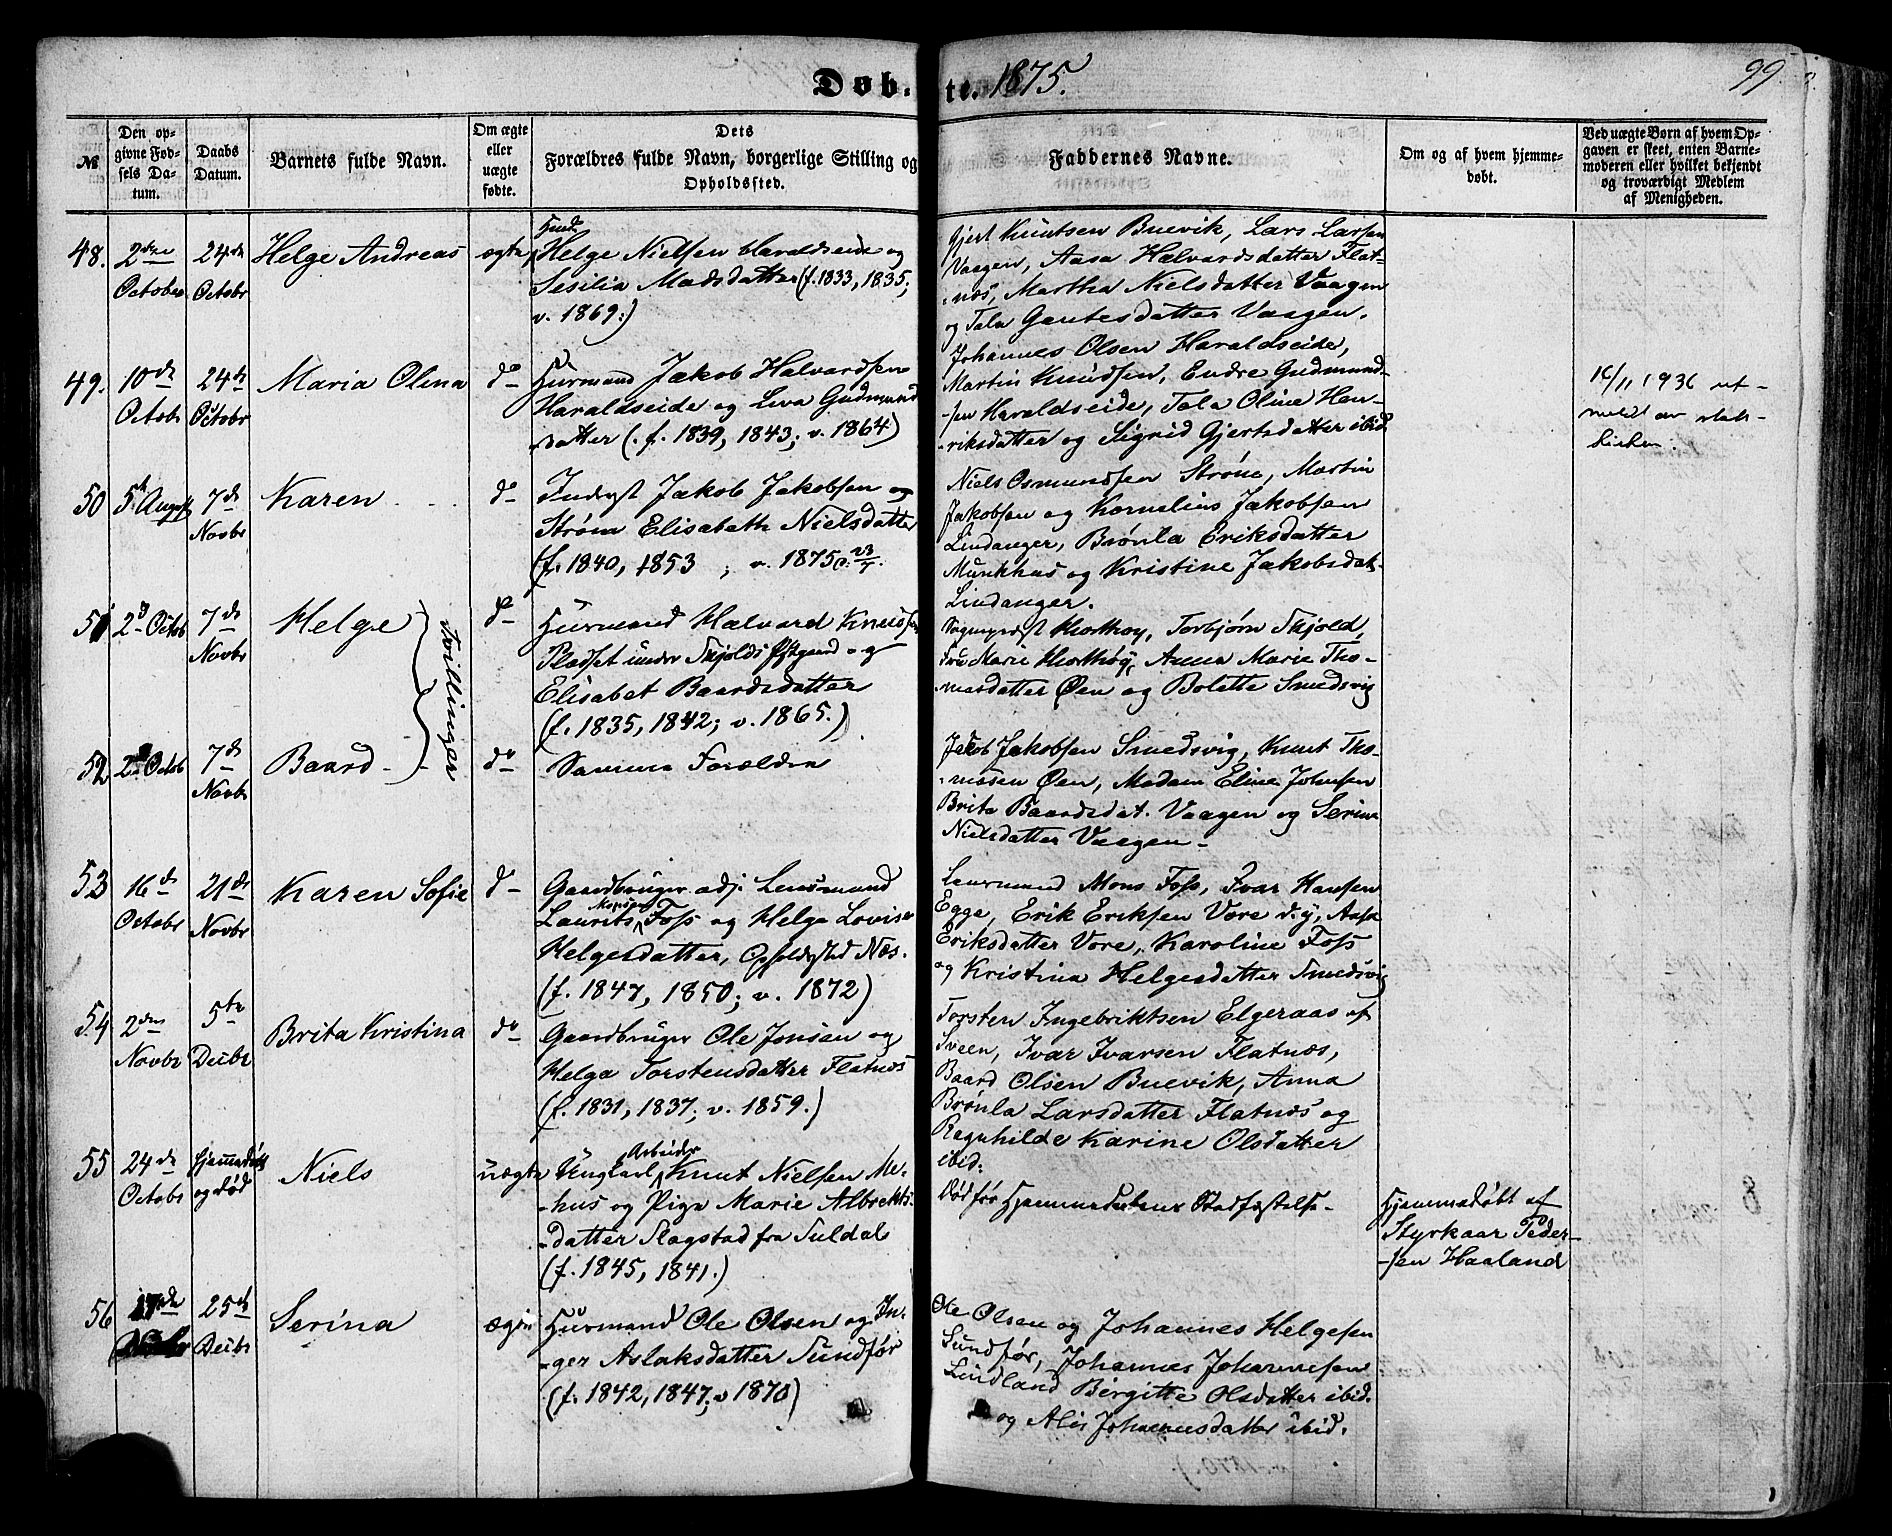 Døb-
te. 1875.
99
№
Den op-
givne Fød-
sels Da-
tum.
Daabs
Datum.
Barnets fulde Navn.
Om ægte
eller
uægte
fødte.
Dets
Forældres fulde Navn, borgerlige Stilling og
Opholdssted.
Faddernes Navne.
Om og af hvem hjemme-
døbt.
Ved uægte Børn af hvem Op-
gaven er skeet, enten Barne-
moderen eller hvilket bekjendt
og troværdigt Medlem
af Menigheden.
48.
2den
October
24de
Octobr
Helge Andreas
ægte
Helge Nielsen Haraldseide og
Sesilia Madsdatter (f. 1833, 1835;
v. 1869.)
Gjert Knutsen Buevik, Lars Larsen
Vaagen, Aasa Halvardsdatter Flat-
næs, Martha Nielsdatter Vaagen
og Tala Gautesdatter Vaagen.
49.
10de
Octobr
24de
Octobr
Maria Olina
do
Huusmand Jakob Halvardsen
Haraldseide og Eva Gudmund
datter (f. 1839, 1843; v. 1864)
Johannes Olsen Haraldseide,
Martin Knudsen, Endre Gudmund-
sen Haraldseide, Tala Oline Hen-
riksdatter og Sigrid Gjertsdatter ibid
16/11 1936 ut-
meldt av stats-
kirken.
50
5te August
7de
Novbr
Karen
do
Inderst Jakob Jakobsen og
Strøm Elisabeth Nielsdatter
(f. 1840, 1853 ; v. 1875
Niels Osmundsen Strøm, Martin
Jakobsen og Kornelius Jakobsen
Lindanger, Brønla Eriksdatter
Munkhus og Kristine Jakobsdat.
Lindanger.
51
2d Octob
7de
Novbr
Helge
Tvillinger
do
Huusmand Halvard Knudsen
Pladset under Skjolds Østgaard og
Elisabet Baardsdatter
(f. 1835, 1842; v. 1865.)
Sogneprest Horthøy, Torbjørn Skjold,
Fru Marie Horthøy, Anna Marie Tho-
masdatter Øen og Bolette Smedsvig
52
2d Octob
7de
Novbr
Baard
do
Samme Forældre
Jakob Jakobsen Smedsvig, Knut Tho-
massen Øen, Madam Eline Johnsen
Brita Baardsdat. Vaagen og Serina
Nielsdatter Vaagen
53
16de
Octobr
21de
Novbr
Karen Sofie
do
Gaardbruger adj. Lensmand
Laurits Monsen Foss og Helga Lovise
Helgesdatter, Opholdssted Næs.
(f. 1847, 1850; v. 1872)
Lensmand Mons Foss, Ivar Hansen
Egge, Erik Eriksen Vore d.y, Aasa
Eriksdatter Vore, Karoline Foss
og Kristina Helgesdatter Smedsvig
54
2den
Novbr
5te
Decbr
Brita Kristina
do
Gaardbruger Ole Jonsen og
Helga Torstensdatter Flatnæs
(f. 1831, 1837; v. 1859.)
Torsten Ingebriktsen Elgeraas af
Sveen, Ivar Ivarsen Flatnæs,
Baard Olsen Buevik, Anna
Brønla Larsdatter Flatnæs og
Regnhilde Karine Olsdatter
ibid.
55
24de
Octobr
Hjemmedøbt
og død
Niels
uægte
Ungkarl Arbeider Knut Nielsen Me-
hus og Pige Marie Albrekts-
datter Slagstad fra Suldal
(f. 1845, 1841.)
Død før Hjemmedaabens Stadfæstelse
Hjemmedøbt af
Styrkaar Peder-
sen Haaland
56
17de
Novbr
25de
Decbr
Serina
ægte
Huusmand Ole Olsen og In-
ger Aslaksdatter Sundfør
(f. 1842, 1847; v 1870)
Ole Olsen og Johannes Helgesen
Sundfør, Johannes Johannesen
Lindland Birgitte Olsdatter ibid.
og Alis Johannesdatter ibid.